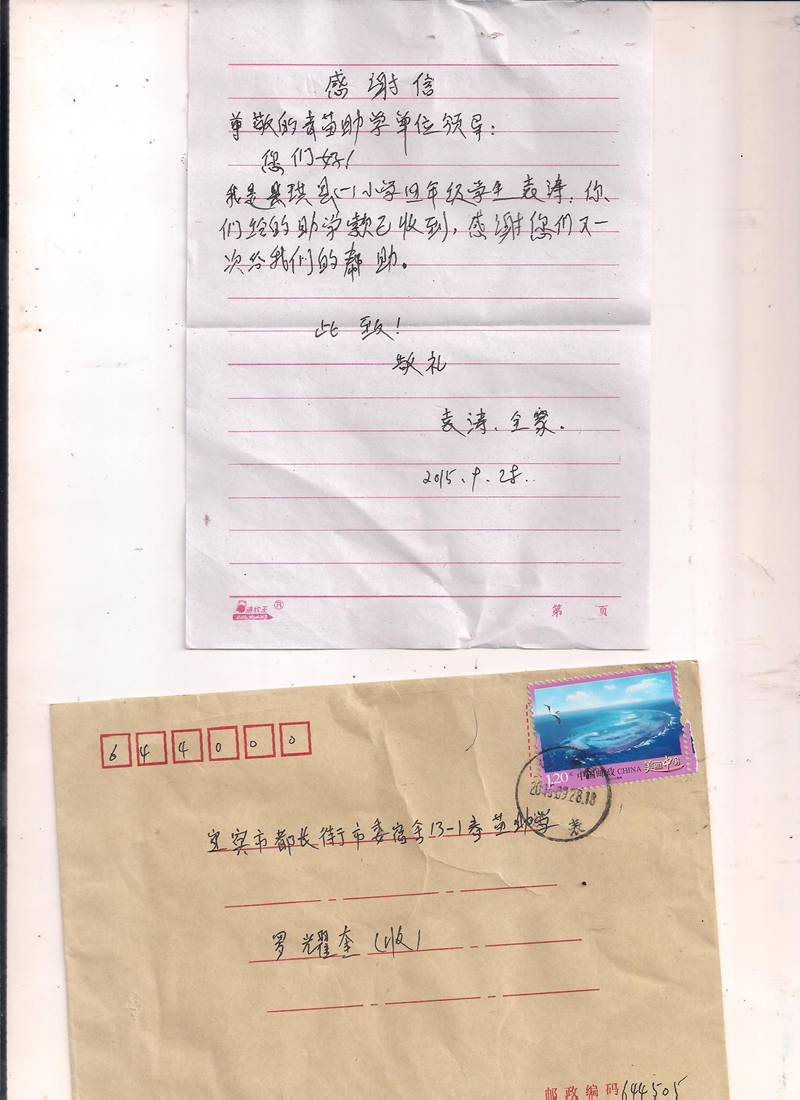 感谢信
尊敬的青苗助学单位领导：
您们好！
我是珙县一小学四年级学生袁涛，你
们给的助学款已收到，感谢您们又一
次给我们的帮助。
此致！
敬礼
袁涛、全家。
2015.9.28.
®
第 页
644000
1.20元 中国邮政 CHINA 美丽中国
2015.09.28.18
宜宾市都长街市委宿舍13-1青苗助学
罗耀奎（收）
邮政编码644505